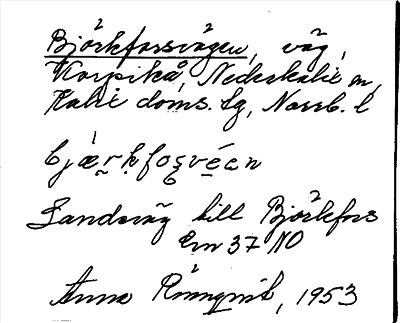 Björkforsvägen, väg,
Korpikå, Nederkalix sn,
Kalix doms. lg, Norrb. l
bjæ̀r̥k̥foṣvé̱en
Landsväg till Björkfors
Em 37 NO
Anna Rönnqvist, 1953